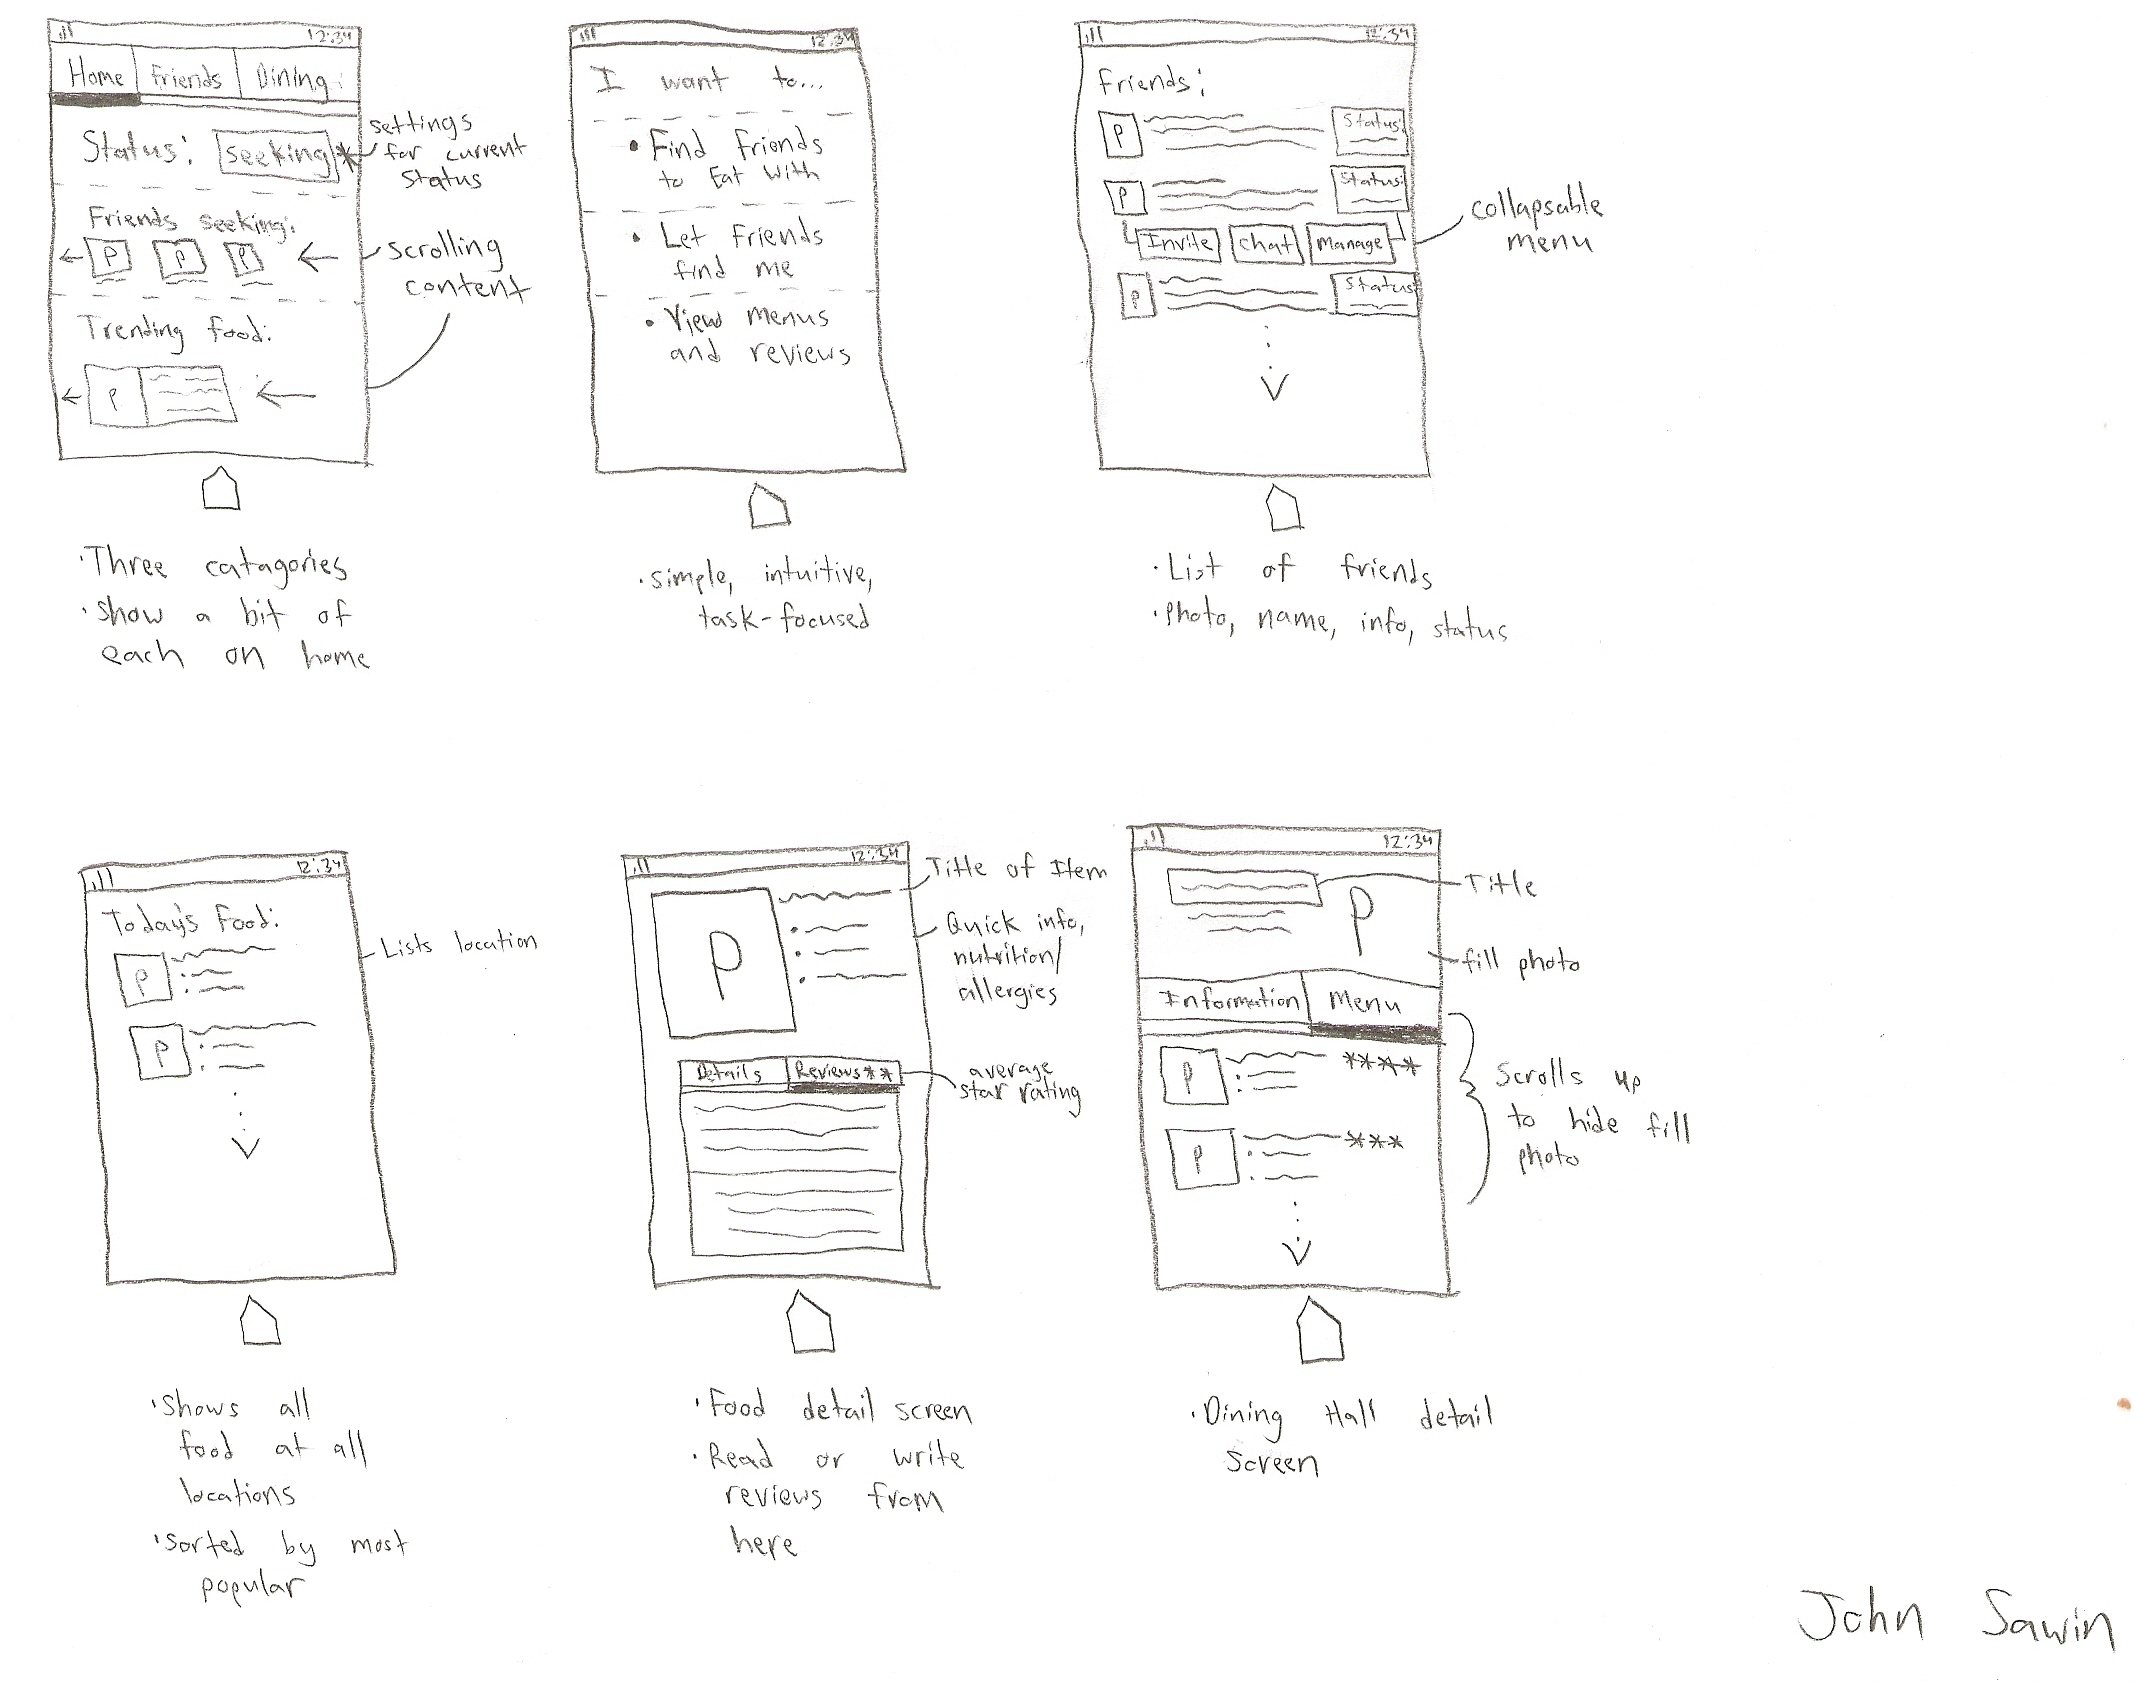 12:34
Home Friends Dining
Status: seeking *
settings
for current
status
Friends seeking:
P P P
scrolling
content
Trending food:
P
·Three catagories
·show a bit of
each on home
12:34
I want to...
• Find friends
to Eat with
• Let friends
find me
• View menus
and reviews
·simple, intuitive,
task-focused
12:34
friends:
P Status:
P Status:
Invite chat manage
P Status:
collapsable
menu
·List of friends
·photo, name, info, status
12:34
Today's Food:
P
P
Lists location
·Shows all
food at all
locations
·Sorted by most
popular
12:34
P
Title of Item
Quick info,
nutrition/
allergies
Details Reviews**
average
star rating
·Food detail screen
·Read or write
reviews from
here
12:34
P
Title
fill photo
Information Menu
P ****
P ***
Scrolls up
to hide fill
photo
·Dining Hall detail
screen
John Sawin